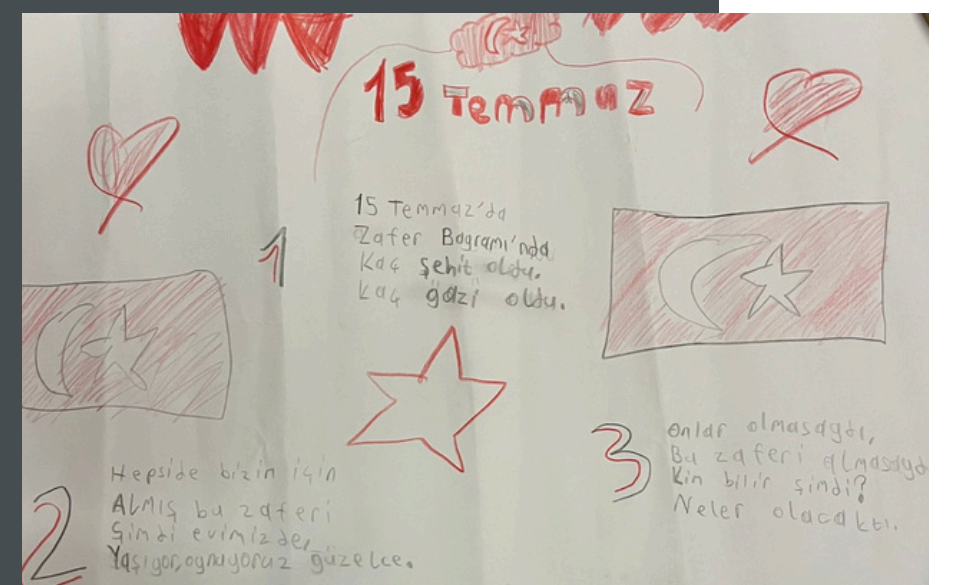 15 Temmuz
1
15 Temmaz'da
Zafer Bagramı'nda
Kaç şehit oldu.
kaç gazi oldu.
2
Hepside bizin için
ALMIŞ bu zaferi
Şimdi evimizde,
Yaşıyor,oynuyoruz güzelce.
3
Onlar olmasaydı,
Bu zaferi almasayd
Kin bilir şimdi?
Neler olacaktı.